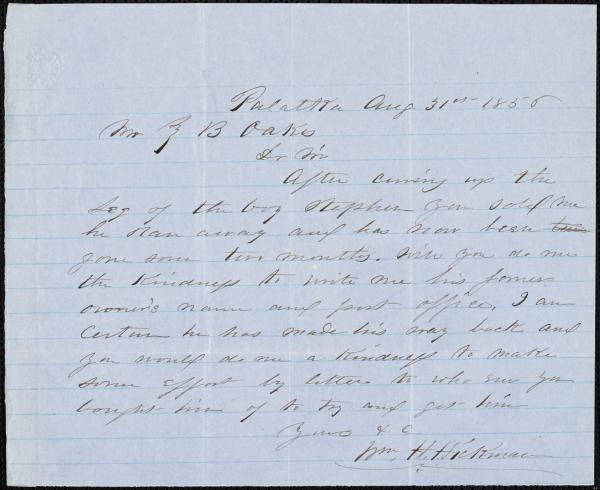 Palatka Aug 31st 1856
Mr Z B Oakes
Dr Sir
After curing up the
Leg of the boy Stephen you sold me
he ran away and has now been
gone some two months. Will you do me
the Kindness to write me his former
owner's name and post office, I am
Certain he has made his way back and
you would do me a Kindness to make
some effort by letters to who ever you
bought him of to try and get him
Yours &C
Wm H. Hickman